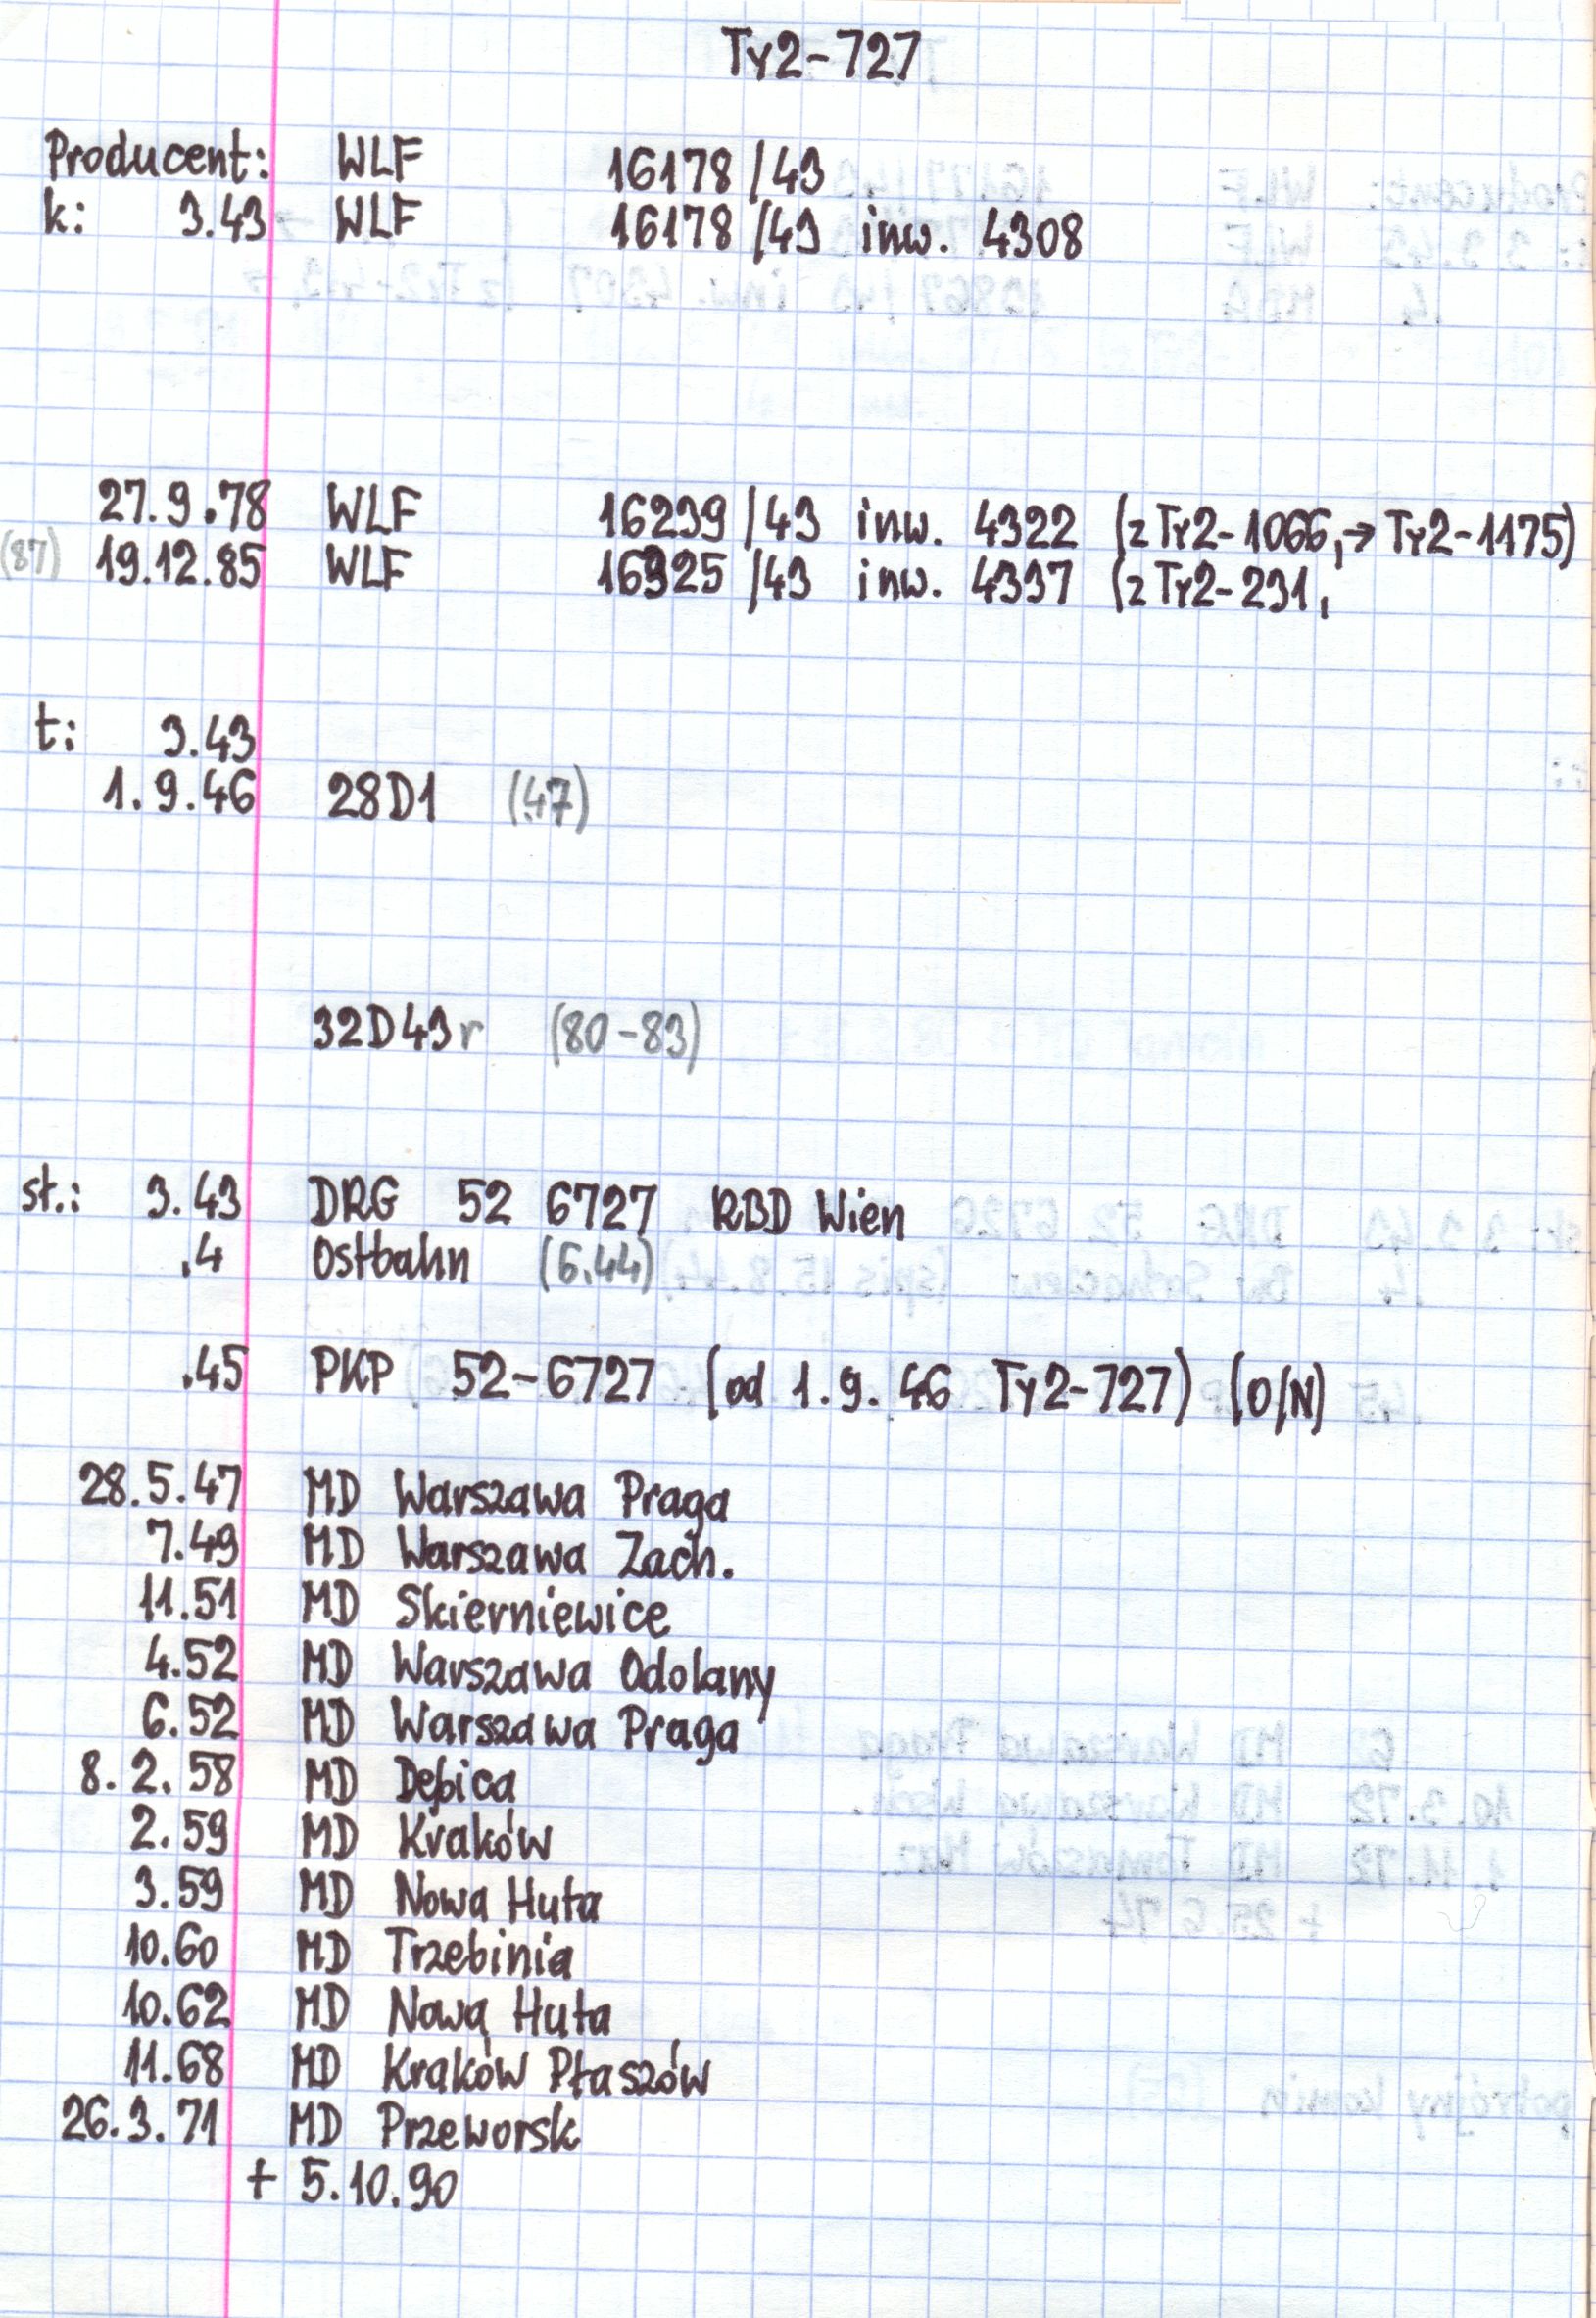 Ty2-727
Producent: WLF 16178/43
k: 3.43 WLF 16178/43 inw. 4308
27.9.78 WLF 16239/43 inw. 4322 (z Ty2-1066,→ Ty2-1175)
(87) 19.12.85 WLF 16325/43 inw. 4337 (z Ty2-231,
t: 3.43
1.9.46 28D1 (47)
32D43r (80-83)
st.: 3.43 DRG 52 6727 RBD Wien
.4 Ostbahn (6.44)
.45 PKP 52-6727 (od 1.9.46 Ty2-727) (O/N)
28.5.47 MD Warszawa Praga
7.49 MD Warszawa Zach.
11.51 MD Skierniewice
4.52 MD Warszawa Odolany
6.52 MD Warszawa Praga
8.2.58 MD Dębica
2.59 MD Kraków
3.59 MD Nowa Huta
10.60 MD Trzebinia
10.62 MD Nowa Huta
11.68 MD Kraków Płaszów
26.3.71 MD Przeworsk
+ 5.10.90